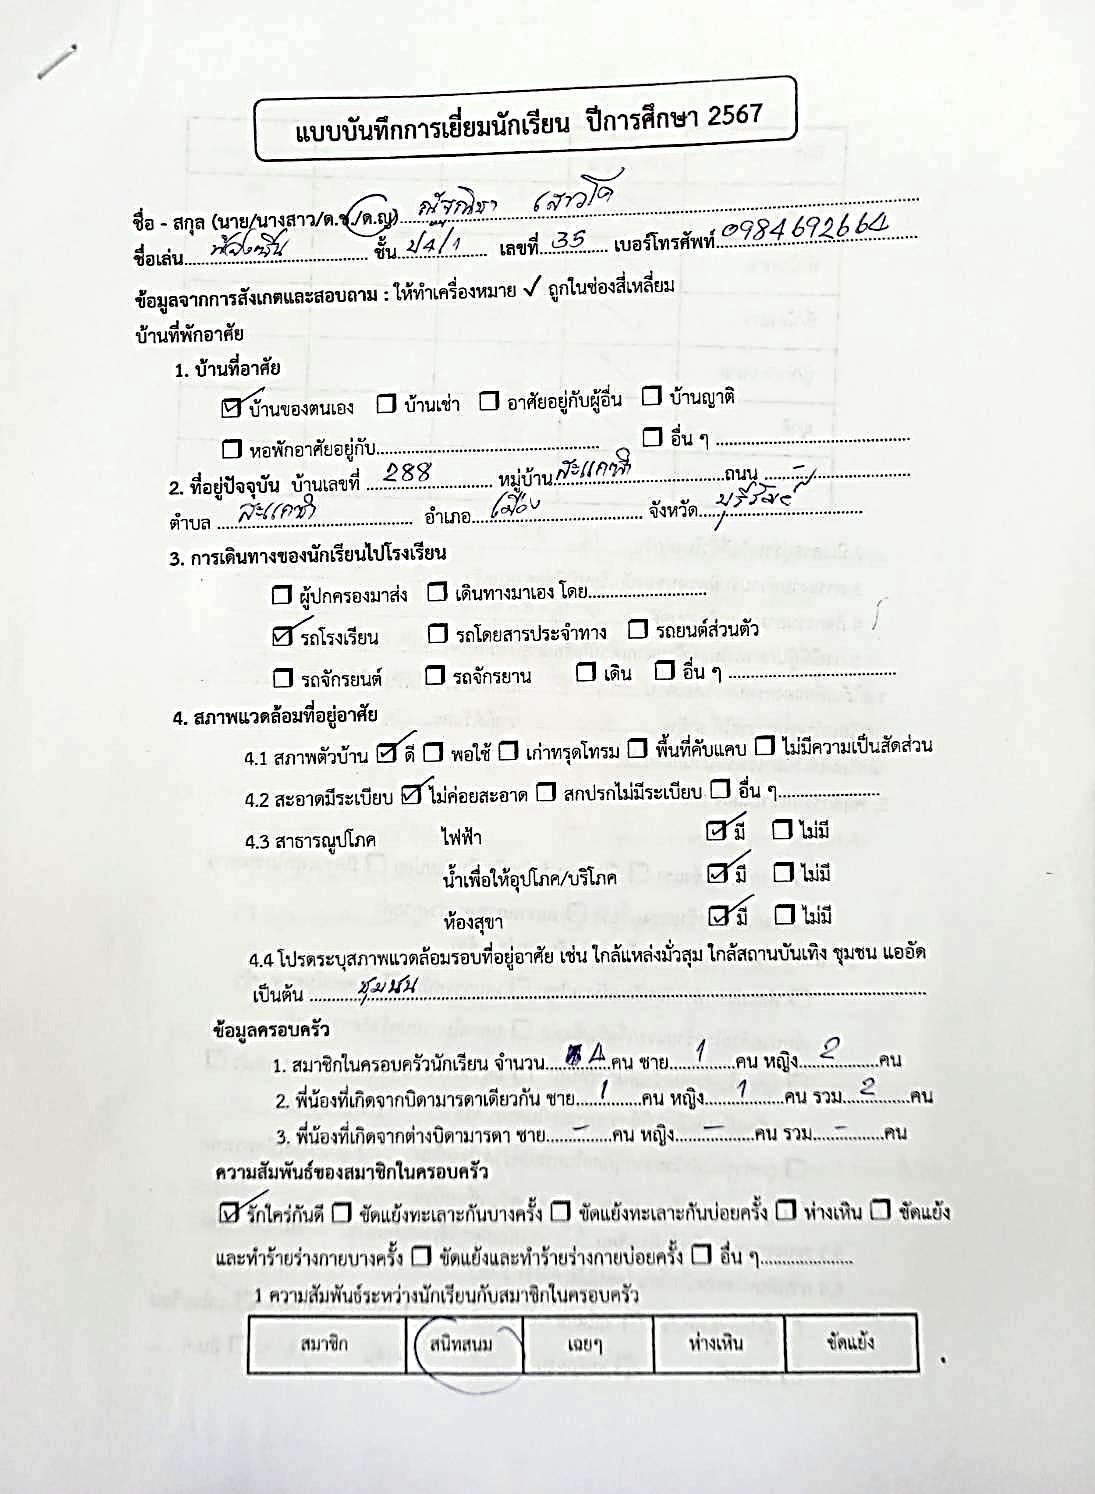 แบบบันทึกการเยี่ยมนักเรียน ปีการศึกษา 2567
ชื่อ - สกุล (นาย/นางสาว/ด.ช./ด.ญ) ณัฐณิชา เสาวโค
ชื่อเล่น ชั้น ป4/1 เลขที่ 35 เบอร์โทรศัพท์ 0984692664
ข้อมูลจากการสังเกตและสอบถาม : ให้ทำเครื่องหมาย ✓ ถูกในช่องสี่เหลี่ยม
บ้านที่พักอาศัย
1. บ้านที่อาศัย
☑ บ้านของตนเอง ☐ บ้านเช่า ☐ อาศัยอยู่กับผู้อื่น ☐ บ้านญาติ
☐ หอพักอาศัยอยู่กับ........ ☐ อื่น ๆ ........
2. ที่อยู่ปัจจุบัน บ้านเลขที่ 288 หมู่บ้าน สะแกซำ ถนน -
ตำบล สะแกซำ อำเภอ เมือง จังหวัด บุรีรัมย์
3. การเดินทางของนักเรียนไปโรงเรียน
☐ ผู้ปกครองมาส่ง ☐ เดินทางมาเอง โดย........
☑ รถโรงเรียน ☐ รถโดยสารประจำทาง ☐ รถยนต์ส่วนตัว
☐ รถจักรยนต์ ☐ รถจักรยาน ☐ เดิน ☐ อื่น ๆ ........
4. สภาพแวดล้อมที่อยู่อาศัย
4.1 สภาพตัวบ้าน ☑ ดี ☐ พอใช้ ☐ เก่าทรุดโทรม ☐ พื้นที่คับแคบ ☐ ไม่มีความเป็นสัดส่วน
4.2 สะอาดมีระเบียบ ☑ ไม่ค่อยสะอาด ☐ สกปรกไม่มีระเบียบ ☐ อื่น ๆ........
4.3 สาธารณูปโภค ไฟฟ้า ☑ มี ☐ ไม่มี
น้ำเพื่อให้อุปโภค/บริโภค ☑ มี ☐ ไม่มี
ห้องสุขา ☑ มี ☐ ไม่มี
4.4 โปรดระบุสภาพแวดล้อมรอบที่อยู่อาศัย เช่น ใกล้แหล่งมั่วสุม ใกล้สถานบันเทิง ชุมชน แออัด
เป็นต้น ชุมชน
ข้อมูลครอบครัว
1. สมาชิกในครอบครัวนักเรียน จำนวน 4 คน ชาย 1 คน หญิง 2 คน
2. พี่น้องที่เกิดจากบิดามารดาเดียวกัน ชาย 1 คน หญิง 1 คน รวม 2 คน
3. พี่น้องที่เกิดจากต่างบิดามารดา ชาย - คน หญิง - คน รวม - คน
ความสัมพันธ์ของสมาชิกในครอบครัว
☑ รักใคร่กันดี ☐ ขัดแย้งทะเลาะกันบางครั้ง ☐ ขัดแย้งทะเลาะกันบ่อยครั้ง ☐ ห่างเหิน ☐ ขัดแย้ง
และทำร้ายร่างกายบางครั้ง ☐ ขัดแย้งและทำร้ายร่างกายบ่อยครั้ง ☐ อื่น ๆ........
1 ความสัมพันธ์ระหว่างนักเรียนกับสมาชิกในครอบครัว
สมาชิก สนิทสนม เฉยๆ ห่างเหิน ขัดแย้ง